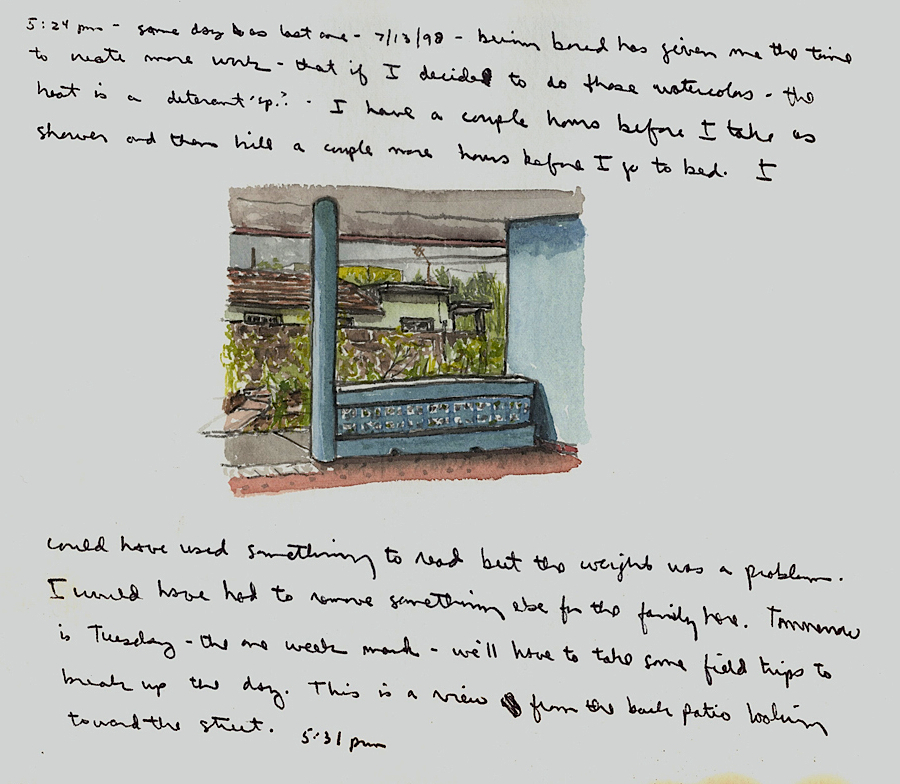 5:24 pm - same day as last one - 7/13/98 - being bored has given me the time
to create more work - that if I decided to do these watercolors - the
heat is a deterant 'sp.?' . I have a couple hours before I take as
shower and then kill a couple more hours before I go to bed. I
could have used something to read but the weight was a problem.
I would have had to remove something else for the family here. Tommorrow
is Tuesday - the one week mark - we'll have to take some field trips to
break up the day. This is a view from the back patio looking
toward the street. 5:31 pm